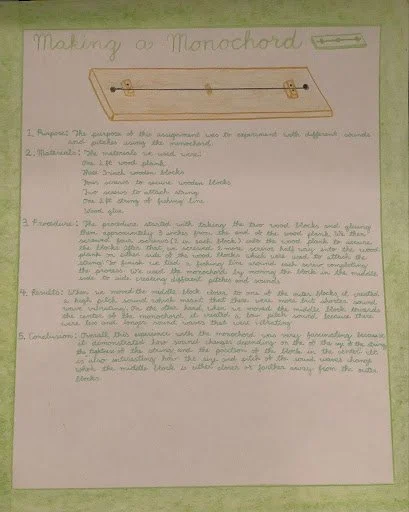 Making a Monochord
1. Purpose: The purpose of this assignment was to experiment with different sounds
and pitches using the monochord.
2. Materials: The materials we used were:
One 2 ft wood plank
Three 3 inch wooden blocks
Four screws to secure wooden blocks
Two screws to attach string
One 2 ft string of fishing line
Wood glue
3. Procedure: The procedure started with taking the two wood blocks and glueing
them approximately 3 inches from the end of the wood plank. We then
screwed four screws (2 in each block) into the wood plank to secure
the blocks. After that we screwed 2 more screws half way into the wood
plank on either side of the wood blocks which were used to attach the
string. To finish we tied a fishing line around each screw completing
the process. We used the monochord by moving the block in the middle
side to side creating different pitches and sounds.
4. Results: When we moved the middle block closer to one of the outer blocks, it created
a high pitch sound which meant that there were more but shorter sound
waves vibrating. On the other hand when we moved the middle block towards
the center of the monochord, it created a low pitch sound because there
were less and longer sound waves that were vibrating.
5. Conclusion: Overall this experiment with the monochord was very fascinating because
it demonstrated how sound changes depending on the of the size of the string,
the tightness of the string and the position of the block in the center. It
is also interesting how the size and pitch of the sound waves change
when the middle block is either closer or farther away from the outer
blocks.